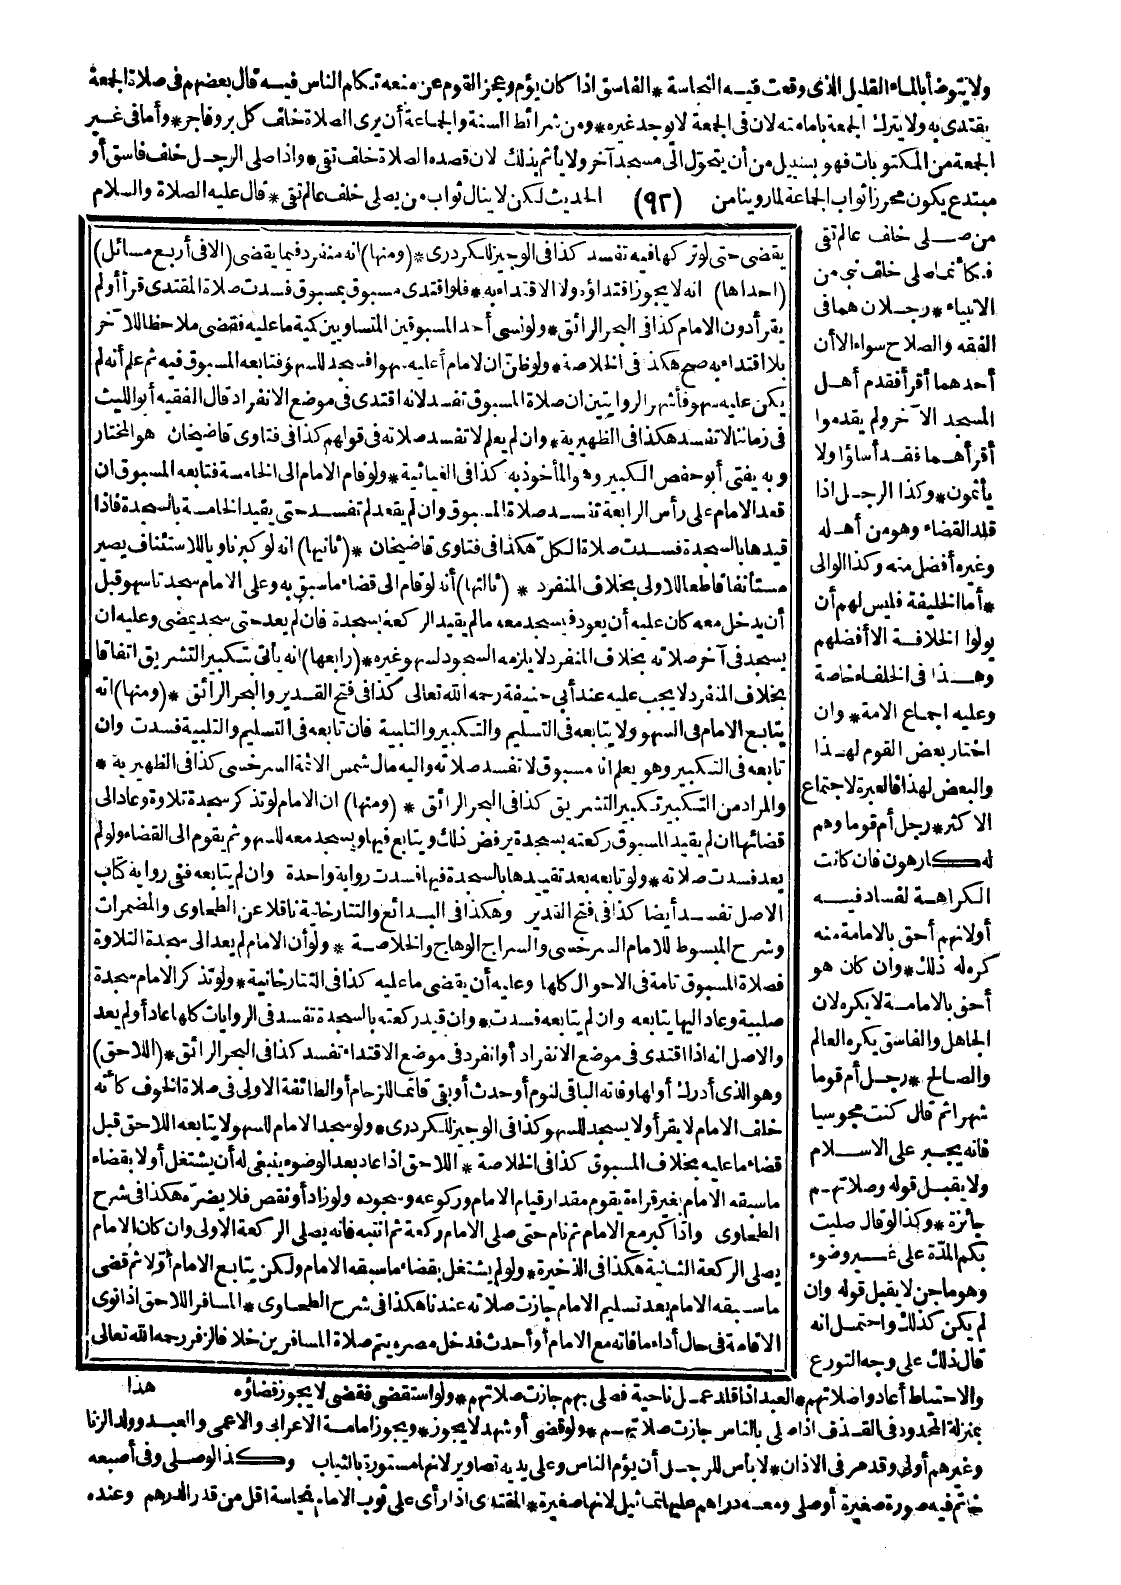 ولا يتوضأ بالماء القليل الذى وقعت فيه النجاسة * الفاسق اذا كان يؤم وعجز القوم عن منعه تكلم الناس فيه قال بعضهم فى صلاة الجمعة
يقتدى به ولا يترك الجمعة بامامته لان فى الجمعة لا يوجد غيره * ومن شرائط السنة والجماعة أن يرى الصلاة خلف كل بر وفاجر * وأما فى غير
الجمعة من المكتوبات فهو بسبيل من أن يتحول الى مسجد آخر ولا يأثم بذلك لان قصده الصلاة خلف تقى * واذا صلى الرجل خلف فاسق أو
مبتدع يكون محرزا ثواب الجماعة لما روينا من (٩٢) الحديث لكن لا ينال ثواب من يصلى خلف عالم تقى * قال عليه الصلاة والسلام
من صلى خلف عالم تقى
فكأنما صلى خلف نبى من
الانبياء * رجلان هما فى
الفقه والصلاح سواء الا أن
أحدهما أقرأ فقدم أهل
المسجد الآخر ولم يقدموا
أقرأهما فقد أساؤا ولا
يأثمون * وكذا الرجل اذا
قلد القضاء وهو من أهله
وغيره أفضل منه وكذا الوالى
* أما الخليفة فليس لهم أن
يولوا الخلافة الا أفضلهم
وهذا فى الخلفاء خاصة
وعليه اجماع الامة * وان
اختار بعض القوم لهذا
والبعض لهذا فالعبرة لاجتماع
الاكثر * رجل أم قوما وهم
له كارهون فان كانت
الكراهة لفساد فيه
أو لانهم أحق بالامامة منه
كره له ذلك * وان كان هو
أحق بالامامة لا يكره لان
الجاهل والفاسق يكره العالم
والصالح * رجل أم قوما
شهرا ثم قال كنت مجوسيا
فانه يجبر على الاسلام
ولا يقبل قوله وصلاتهم
جائزة * وكذا لو قال صليت
بكم المدّة على غير وضوء
وهو ماجن لا يقبل قوله وان
لم يكن كذلك واحتمل انه
قال ذلك على وجه التورع
والاحتياط أعادوا صلاتهم * العبد اذا قلد عمل ناحية فصلى بهم جازت صلاتهم * ولو استقضى فقضى لا يجوز قضاؤه هذا
بمنزلة المحدود فى القذف اذا صلى بالناس جازت صلاتهم * ولو قضى أو شهد لا يجوز * ويجوز امامة الاعرابى والاعمى والعبد وولد الزنا
وغيرهم أولى وقد مر فى الاذان * لا بأس للرجل أن يؤم الناس وعلى يديه تصاوير لانها مستورة بالثياب وكذا لو صلى وفى أصبعه
خاتم فيه صورة صغيرة أو صلى ومعه دراهم عليها تماثيل لانها صغيرة * المقتدى اذا رأى على ثوب الامام نجاسة اقل من قدر الدرهم وعنده
يقضى حتى لو تركها فيه تفسد كذا فى الوجيز للكردرى * (ومنها) انه منفرد فيما يقضى (الا فى أربع مسائل)
(احداها) انه لا يجوز اقتداؤه ولا الاقتداء به * فلو اقتدى مسبوق بمسبوق فسدت صلاة المقتدى قرأ أو لم
يقرأ دون الامام كذا فى البحر الرائق * ولو نسى أحد المسبوقين المتساويين كمية ما عليه فقضى ملاحظا للآخر
بلا اقتداء به صح هكذا فى الخلاصة * ولو ظن ان الامام عليه سهو فسجد للسهو فتابعه المسبوق فيه ثم علم أنه لم
يكن عليه سهو فأشهر الروايتين ان صلاة المسبوق تفسد لانه اقتدى فى موضع الانفراد قال الفقيه أبو الليث
فى زماننا لا تفسد هكذا فى الظهيرية * وان لم يعلم لا تفسد صلاته فى قولهم كذا فى فتاوى قاضيخان هو المختار
وبه يفتى أبو حفص الكبير وهو المأخوذ به كذا فى الغياثية * ولو قام الامام الى الخامسة فتابعه المسبوق ان
قعد الامام على رأس الرابعة تفسد صلاة المسبوق وان لم يقعد لم تفسد حتى يقيد الخامسة بالسجدة فاذا
قيدها بالسجدة فسدت صلاة الكل هكذا فى فتاوى قاضيخان * (ثانيها) انه لو كبر ناويا للاستئناف يصير
مستأنفا قاطعا للاولى بخلاف المنفرد * (ثالثها) أنه لو قام الى قضاء ما سبق به وعلى الامام سجدتا سهو قبل
أن يدخل معه كان عليه أن يعود فيسجد معه ما لم يقيد الركعة بسجدة فان لم يعد حتى سجد يمضى وعليه ان
يسجد فى آخر صلاته بخلاف المنفرد لا يلزمه السجود لسهو غيره * (رابعها) انه يأتى بتكبير التشريق اتفاقا
بخلاف المنفرد لا يجب عليه عند أبى حنيفة رحمه الله تعالى كذا فى فتح القدير والبحر الرائق * (ومنها) انه
يتابع الامام فى السهو ولا يتابعه فى التسليم والتكبير والتلبية فان تابعه فى التسليم والتلبية فسدت وان
تابعه فى التكبير وهو يعلم انه مسبوق لا تفسد صلاته واليه مال شمس الائمة السرخسى كذا فى الظهيرية *
والمراد من التكبير تكبير التشريق كذا فى البحر الرائق * (ومنها) ان الامام لو تذكر سجدة تلاوة وعاد الى
قضائها ان لم يقيد المسبوق ركعته بسجدة يرفض ذلك ويتابع فيها ويسجد معه للسهو ثم يقوم الى القضاء ولو لم
يعد فسدت صلاته * ولو تابعه بعد تقييدها بالسجدة فيها فسدت رواية واحدة وان لم يتابعه ففى رواية كتاب
الاصل تفسد أيضا كذا فى فتح القدير وهكذا فى البدائع والتتارخانية ناقلا عن الطحاوى والمضمرات
وشرح المبسوط للامام السرخسى والسراج الوهاج والخلاصة * ولو أن الامام لم يعد الى سجدة التلاوة
فصلاة المسبوق تامة فى الاحوال كلها وعليه أن يقضى ما عليه كذا فى التتارخانية * ولو تذكر الامام سجدة
صلبية وعاد اليها يتابعه وان لم يتابعه فسدت * وان قيد ركعته بالسجدة تفسد فى الروايات كلها عاد أو لم يعد
والاصل انه اذا اقتدى فى موضع الانفراد أو انفرد فى موضع الاقتداء تفسد كذا فى البحر الرائق * (اللاحق)
وهو الذى أدرك أولها وفاته الباقى لنوم أو حدث أو بقى قائما للزحام أو الطائفة الاولى فى صلاة الخوف كأنه
خلف الامام لا يقرأ ولا يسجد للسهو كذا فى الوجيز للكردرى * ولو سجد الامام للسهو لا يتابعه اللاحق قبل
قضاء ما عليه بخلاف المسبوق كذا فى الخلاصة * اللاحق اذا عاد بعد الوضوء ينبغى له أن يشتغل أولا بقضاء
ما سبقه الامام بغير قراءة يقوم مقدار قيام الامام وركوعه وسجوده ولو زاد أو نقص فلا يضره هكذا فى شرح
الطحاوى واذا كبر مع الامام ثم نام حتى صلى الامام ركعة ثم انتبه فانه يصلى الركعة الاولى وان كان الامام
يصلى الركعة الثانية هكذا فى الذخيرة * ولو لم يشتغل بقضاء ما سبقه الامام ولكن يتابع الامام أوّلا ثم قضى
ما سبقه الامام بعد تسليم الامام جازت صلاته عندنا هكذا فى شرح الطحاوى * المسافر اللاحق اذا نوى
الاقامة فى حال أداء ما فاته مع الامام أو أحدث فدخل مصره يتم صلاة المسافرين خلافا لزفر رحمه الله تعالى